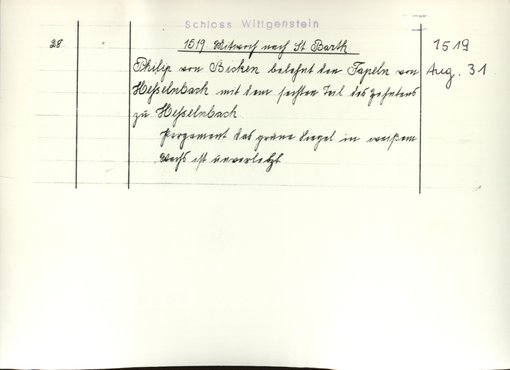 Schloss Wittgenstein
28. 1519 Mitwoch nach St Barth 1519
Philip von Bicken belehnt den Tapeln von Aug. 31
Hesselnbach mit dem sechsten Teil des Zehntens
zu Hesselnbach
Pergament das grüne Siegel in weißem
Wachs ist unverletzt